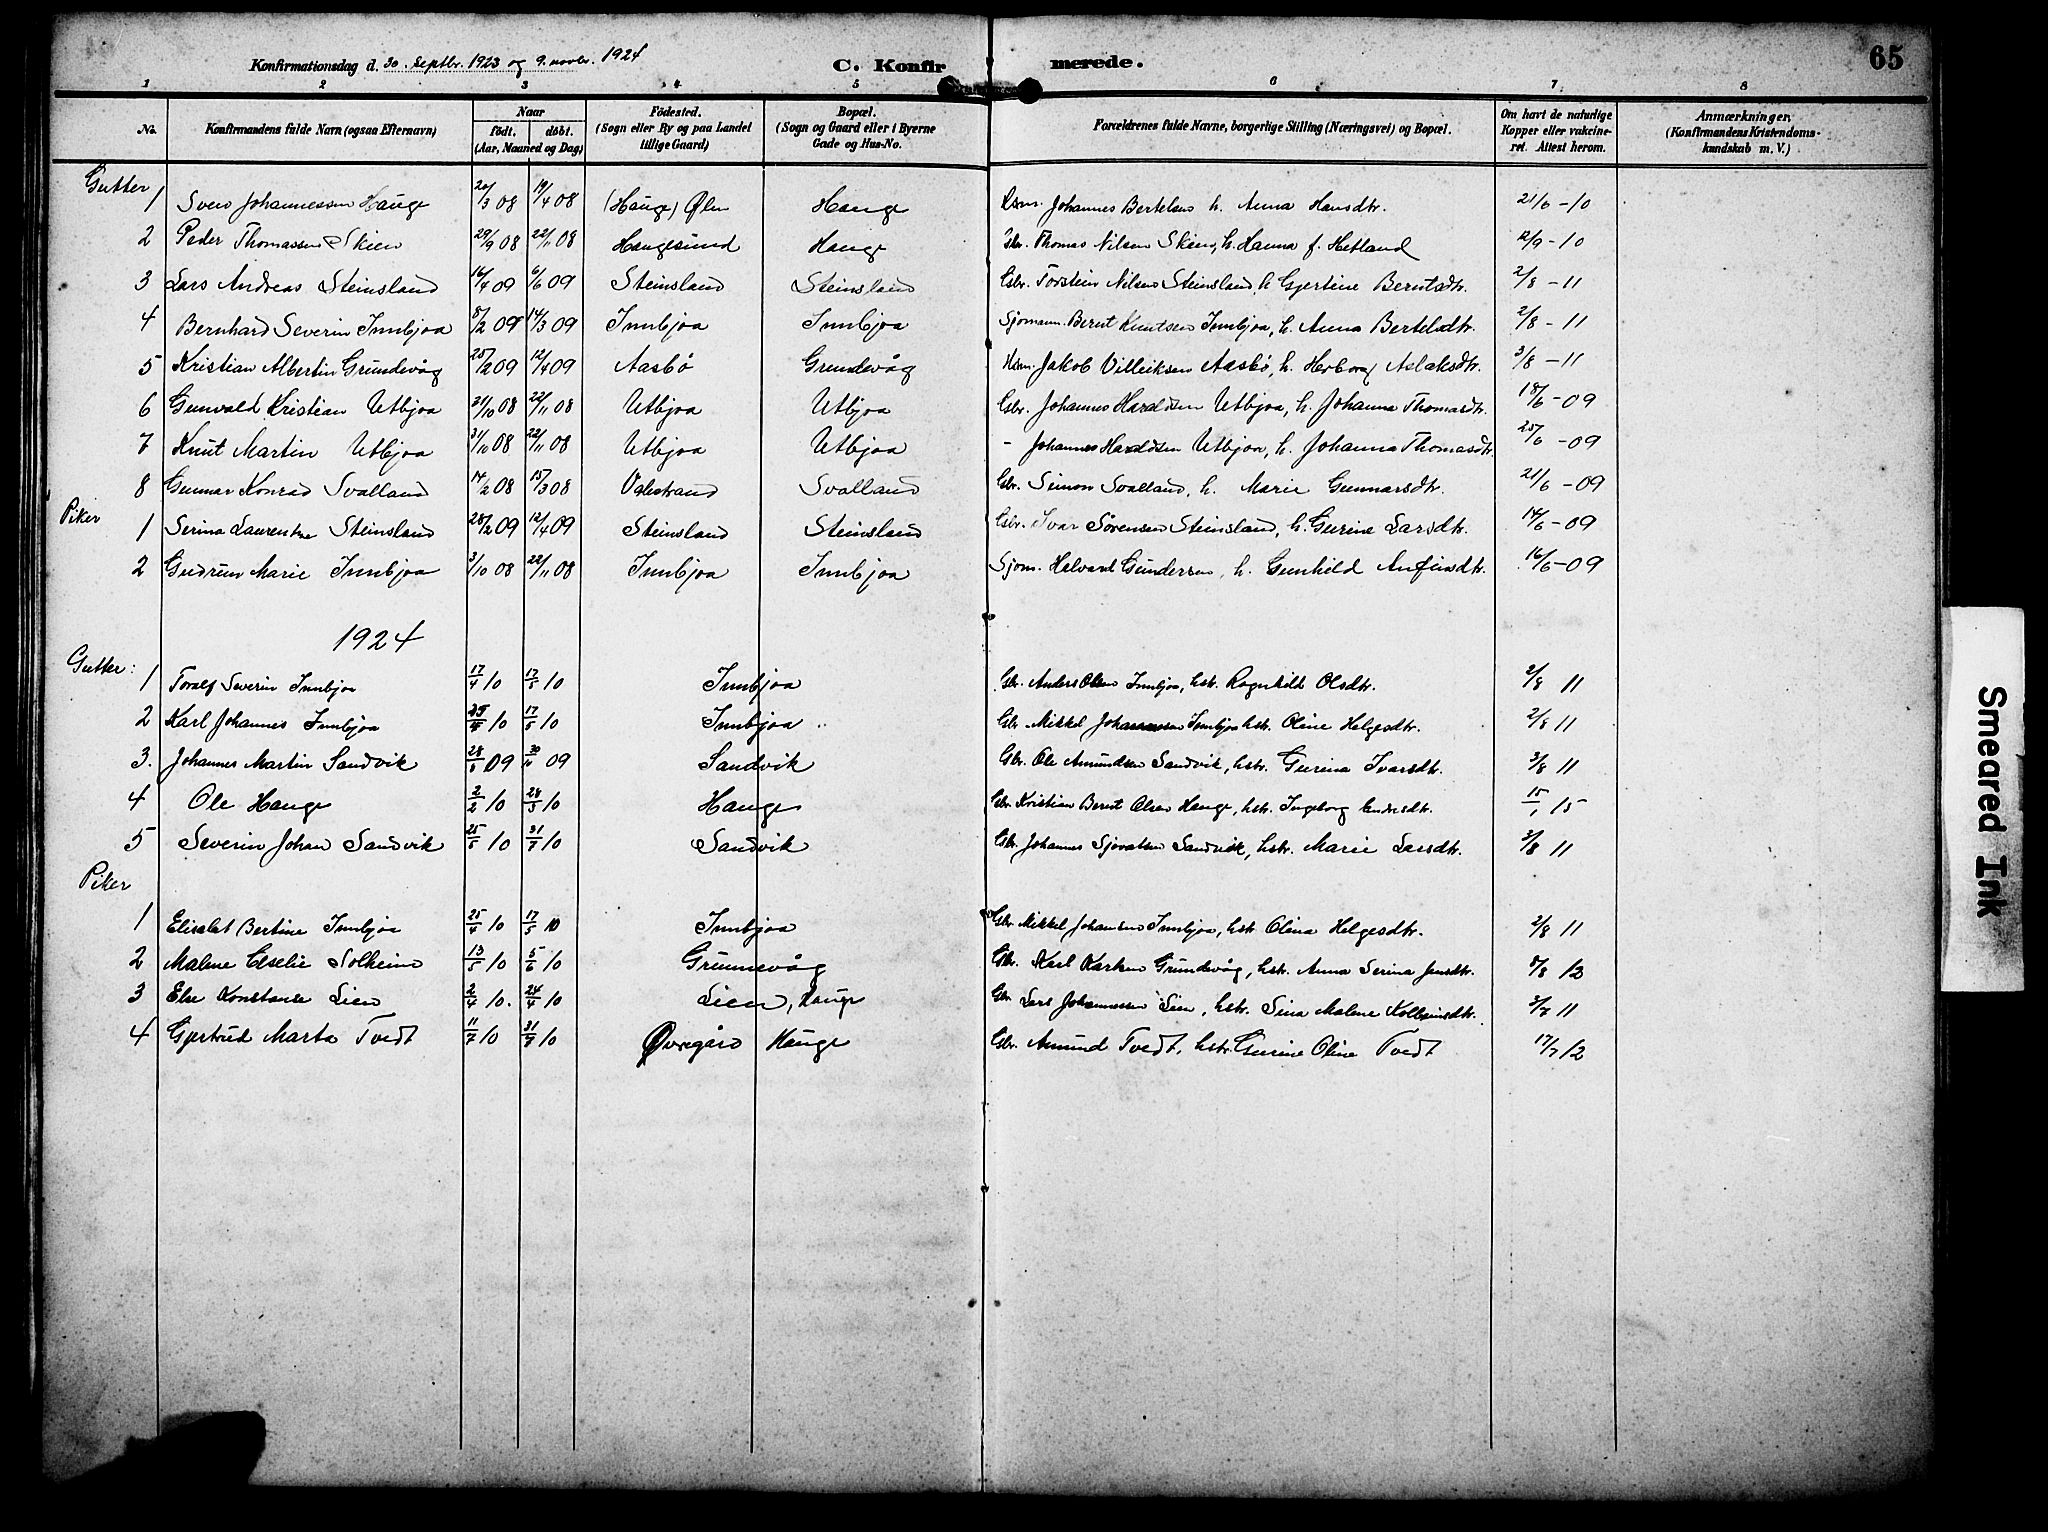 Konfirmationsdag d. 30. Septbr. 1923 og 9. novbr. 1924 C. Konfirmerede. 65
1 2 3 4 5 6 7 8
No. Konfirmandens fulde Navn (ogsaa Efternavn) Naar födt. döbt. (Aar, Maaned og Dag) Födested. (Sogn eller By og paa Landet tillige Gaard) Bopæl. (Sogn og Gaard eller i Byerne Gade og Hus-No. Forældrenes fulde Navne, borgerlige Stilling (Næringsvei) og Bopæl. Om havt de naturlige Kopper eller vakcineret. Attest herom. Anmærkninger. (Konfirmandens Kristendomskundskab m. V.)
Gutter
1 Sven Johannessen Hauge 20/3 08 19/4 08 (Hauge) Ølen Hauge Johannes Bertelsen h. Anna Hansdtr. 21/6 - 10
2 Peder Thomassen Skien 29/9 08 22/11 08 Haugesund Hauge Thomas Nilsen Skien, h. Hanna f. Hetland 12/9 - 10
3 Lars Andreas Steinsland 16/4 09 6/6 09 Steinsland Steinsland Gbr. Torstein Nilsen Steinsland, h. Gjertine Berntsdtr. 2/8 - 11
4 Bernhard Severin Innbjoa 8/2 09 14/3 09 Innbjoa Innbjoa Sjømann. Bernt Knutsen Innbjoa, h. Anna Bertelsdtr. 2/8 - 11
5 Kristian Albertin Grundevåg 25/2 09 12/4 09 Aasbö Grundevåg Jakob Villeiksen Aasbø, h. Herborg Aslaksdtr. 3/8 - 11
6 Gunvald Kristian Utbjoa 31/10 08 22/11 08 Utbjoa Utbjoa Gbr. Johannes Haraldsen Utbjoa, h. Johanna Thomasdtr. 18/6 - 09
7 Knut Martin Utbjoa 31/10 08 22/11 08 Utbjoa Utbjoa - Johannes Haraldsen Utbjoa, h. Johanna Thomasdtr. 25/6 - 09
8 Gunnar Konrad Svalland 14/2 08 15/3 08 Valestrand Svalland Gbr. Simon Svalland, h. Marie Gunnarsdtr. 21/6 - 09
Piker
1 Serina Laurentse Steinsland 28/2 09 12/4 09 Steinsland Steinsland Gbr. Ivar Sørensen Steinsland, h. Gurine Larsdtr. 14/6 - 09
2 Gudrun Marie Innbjoa 3/10 08 22/11 08 Innbjoa Innbjoa Sjöm. Halvard Gundersen, h. Gunhild Anfinsdtr. 16/6 - 09
1924
Gutter:
1 Toralf Severin Innbjoa 17/4 10 17/5 10 Innbjoa Gbr. Anders Olsen Innbjoa, hstr. Ragnhild Olsdtr. 2/8 11
2 Karl Johannes Innbjoa 25/4 10 17/5 10 Innbjoa Gbr. Mikkel Johannessen Innbjoa hstr. Oline Helgesdtr. 2/8 11
3. Johannes Martin Sandvik 09 09 Sandvik Gbr. Ole Amundsen Sandvik, hstr. Gurina Ivarsdtr. 3/8 11
4 Ole Hauge 2/2 10 28/3 10 Hauge Gbr. Kristian Bernt Olsen Hauge, hstr. Ingeborg Endresdtr. 15/1 15
5 Severin Johan Sandvik 25/5 10 31/7 10 Sandvik Gbr. Johannes Sjovatsen Sandvik, hstr. Marie Larsdtr. 3/8 11
Piker
1 Elisabet Bertine Innbjoa 25/4 10 17/5 10 Innbjoa Gbr. Mikkel Johansen Innbjoa, hstr Olina Helgesdtr. 2/8 11
2 Malene Elselie Solheim 13/5 10 5/6 10 Grunnevåg Gbr. Karl Grundevåg, hstr. Anna Serina Jensdtr. 8/8 12
3 Else Konstanse Lien 2/4 10. 24/4 10 Lien, Hauge Gbr Lars Johannessen Lien, hstr. Sina Malene Kolbeinsdtr. 3/7 11
4 Gjertrud Marta Tvedt 11/7 10 31/7 10 Øvregård Hauge Gbr. Amund Tvedt, hstr. Gurine Oline Tvedt 17/7 12
Smeared Ink